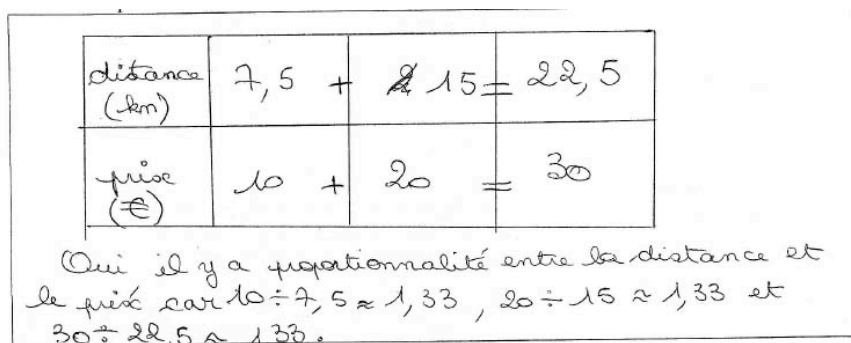 distance (km) 7,5 + 15 = 22,5
prix (€) 10 + 20 = 30
Oui il y a proportionnalité entre la distance et
le prix car 10 ÷ 7,5 ≈ 1,33 , 20 ÷ 15 ≈ 1,33 et
30 ÷ 22,5 ≈ 1,33.